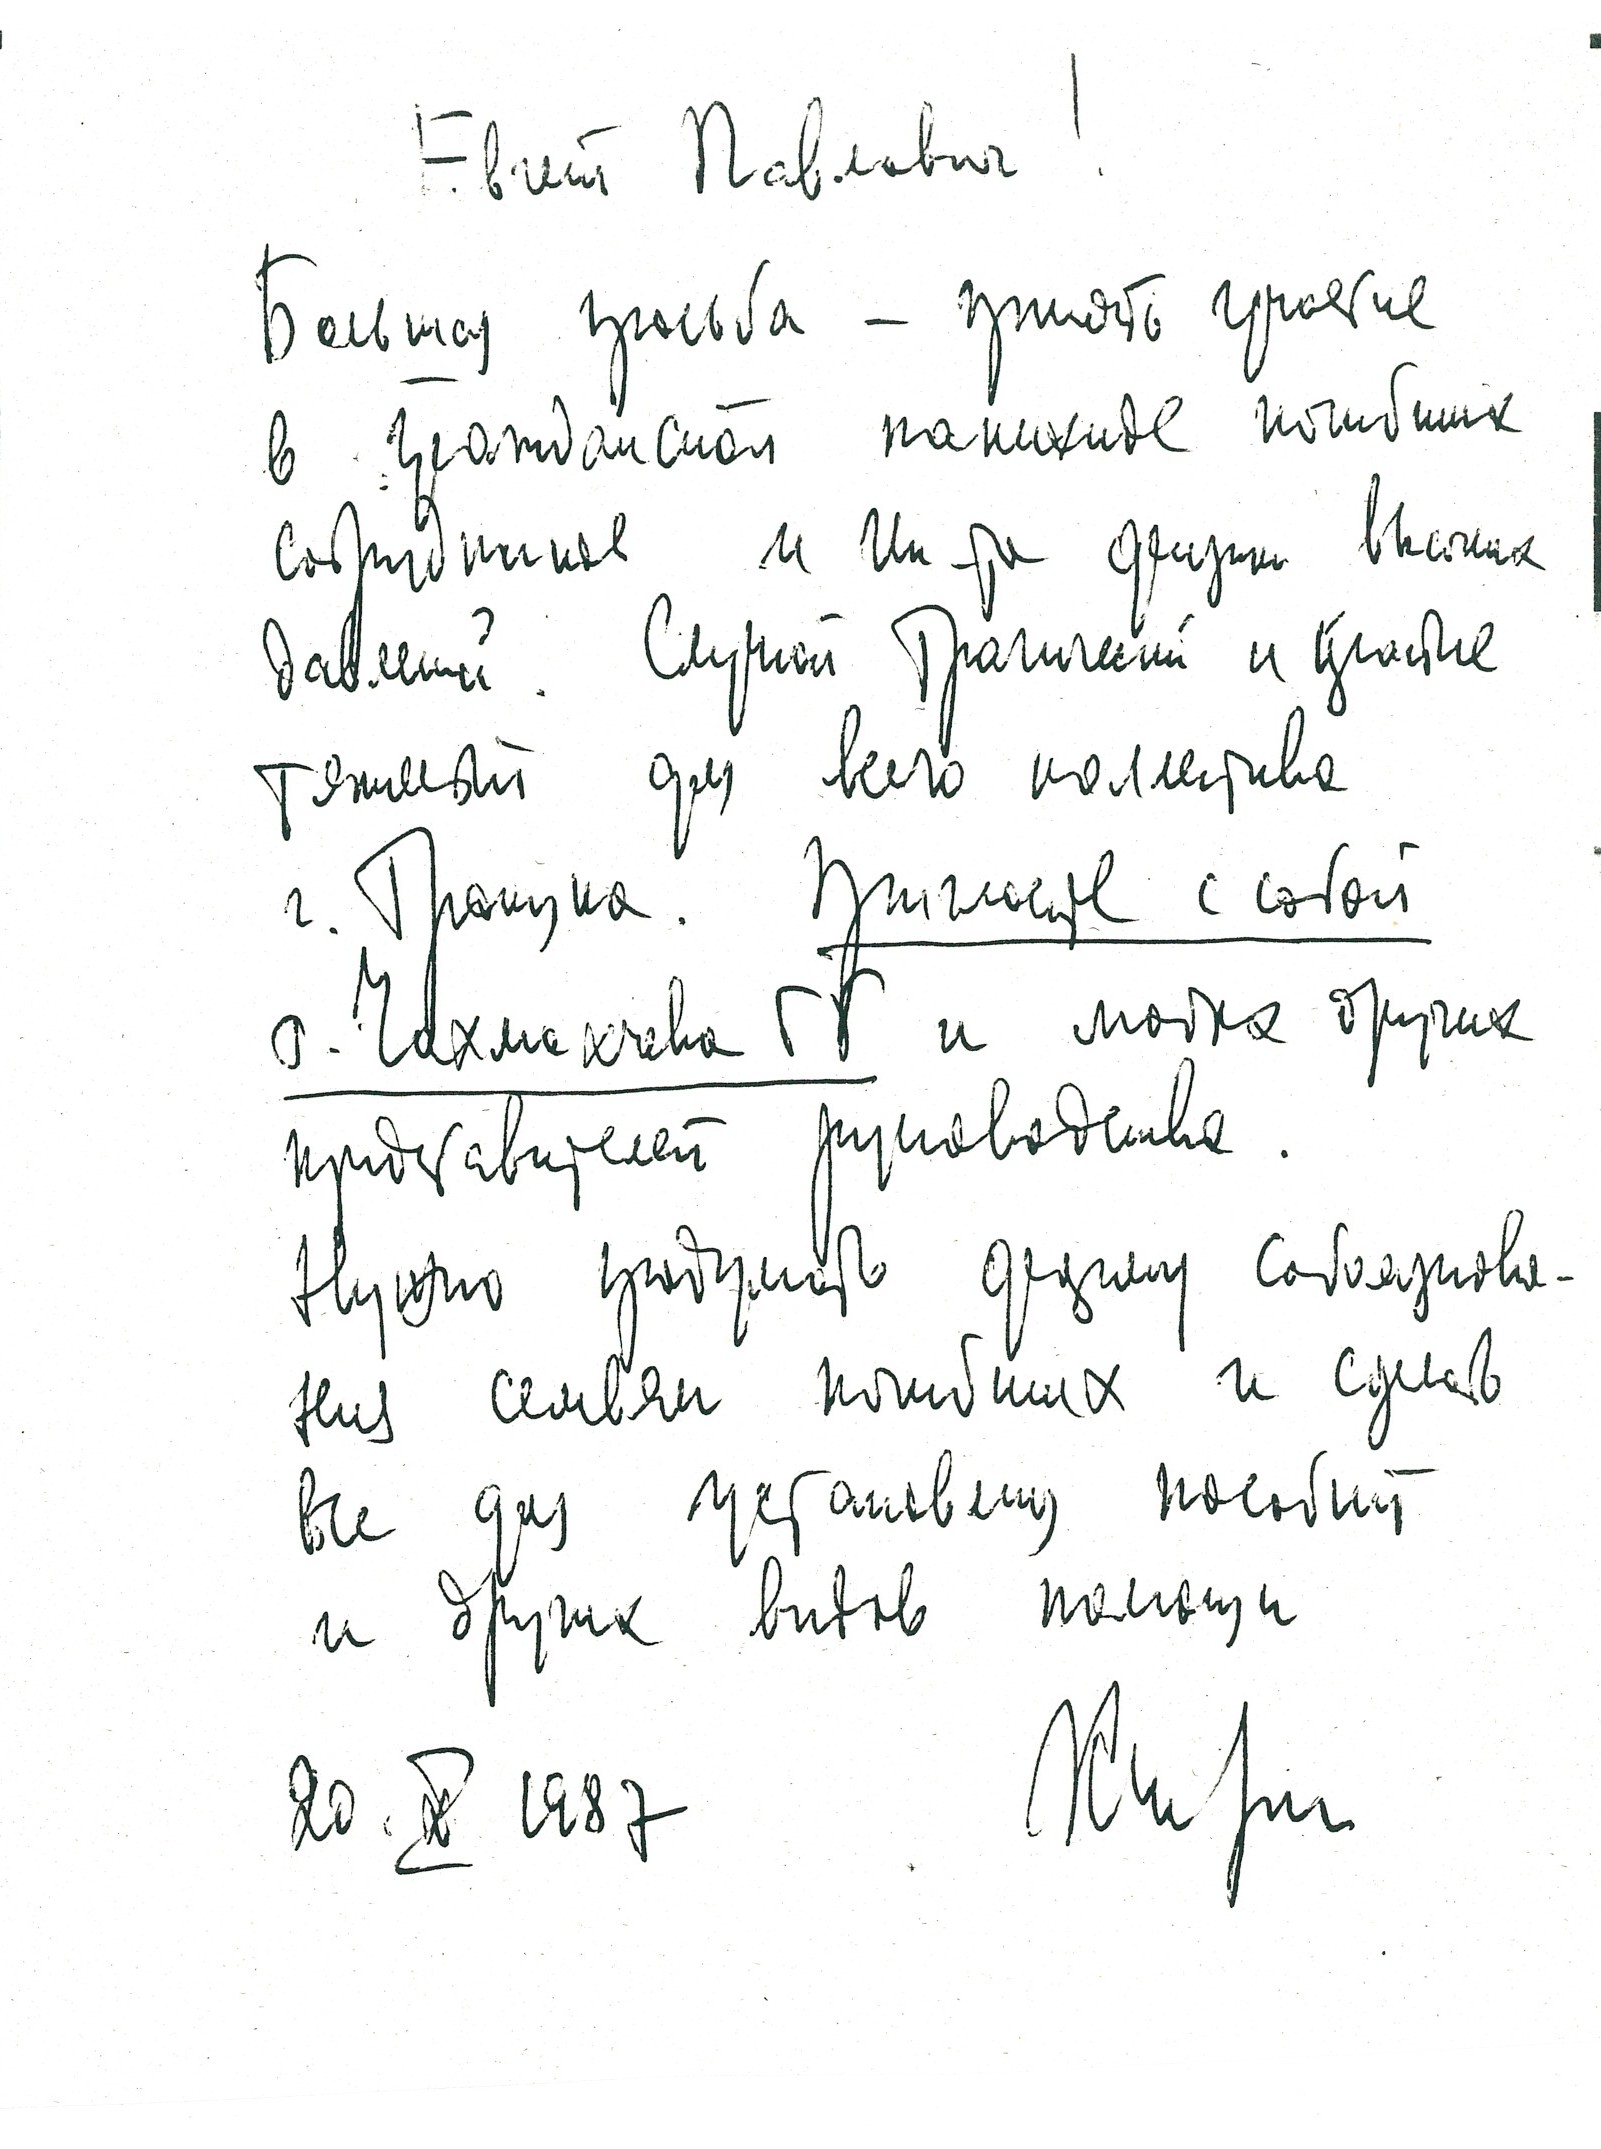 Евгений Павлович!
Большая просьба – принять участие
в гражданской панихиде погибших
сотрудников и Ин-та физики высоких
давлений. Случай трагический и крайне
тяжелый для всего коллектива
г. Троицка. Пригласите с собой
т. Чахмахчева ГГ и может других
представителей руководства.
Нужно продумать форму соболезнова-
ния семьям погибших и сделать
все для установления пособий
и других видов помощи
20. X 1987